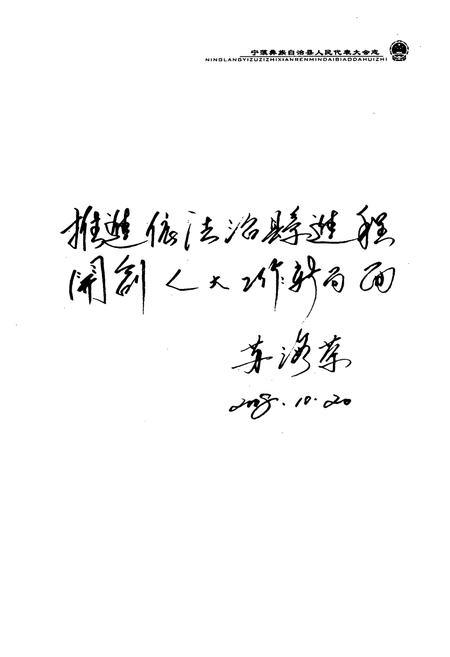 宁蒗彝族自治县人民代表大会志
NINGLANGYIZUZIZHIXIANRENMINDAIBIAODAHUIZHI
推進依法治縣進程
開創人大工作新局面
苏 荣
10.20